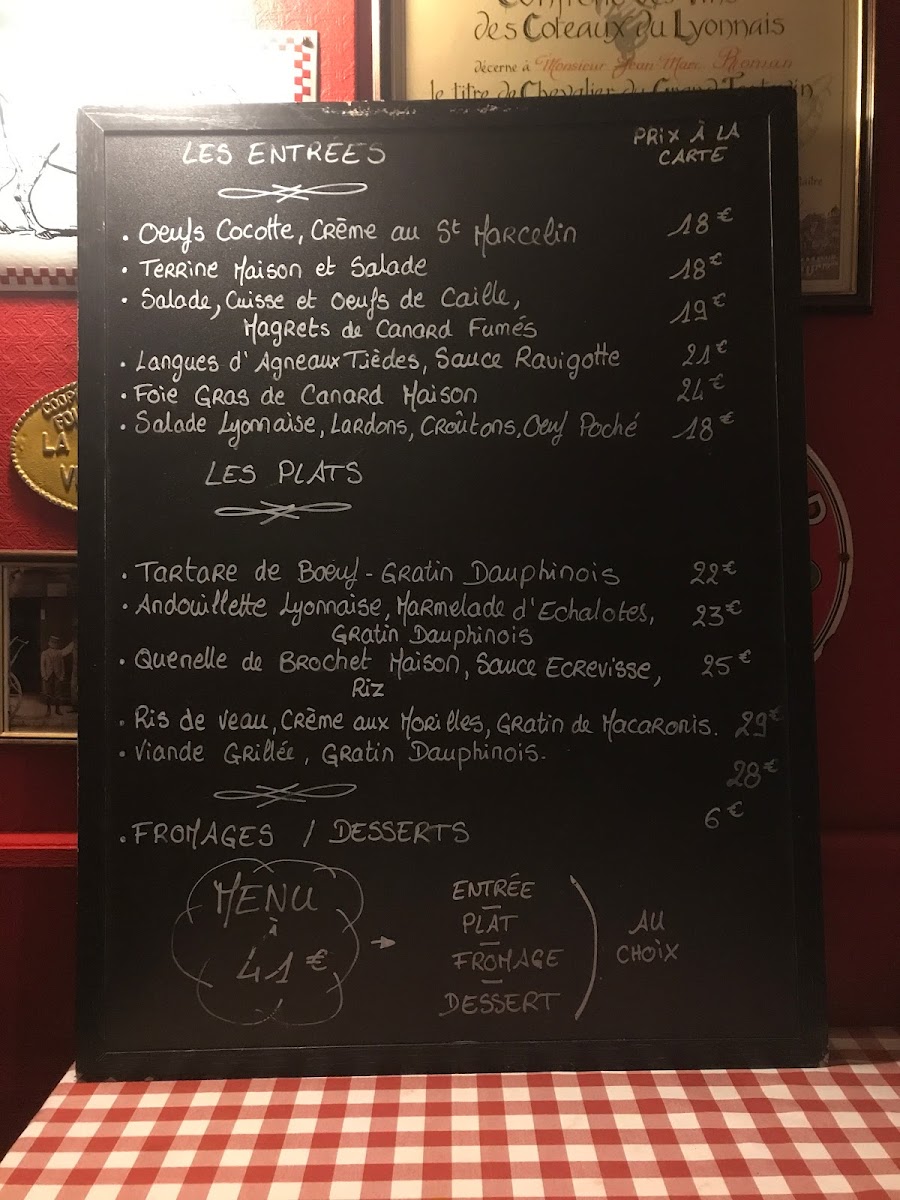 des Coteaux du Lyonnais
décerne à Monsieur Jean-Marc Roman
le titre de Chevalier du
LES ENTRÉES
PRIX À LA
CARTE
. Oeufs Cocotte, Crème au St Marcelin 18€
. Terrine Maison et Salade 18€
. Salade, Cuisse et Oeufs de Caille,
Magrets de Canard Fumés 19€
. Langues d'Agneaux Tièdes, Sauce Ravigotte 21€
. Foie Gras de Canard Maison 24€
. Salade Lyonnaise, Lardons, Croûtons, Oeuf Poché 18€
LES PLATS
. Tartare de Boeuf - Gratin Dauphinois 22€
. Andouillette Lyonnaise, Marmelade d'Echalotes, 23€
Gratin Dauphinois
. Quenelle de Brochet Maison, Sauce Ecrevisse, 25€
Riz
. Ris de veau, Crème aux Morilles, Gratin de Macaronis. 29€
. Viande Grillée, Gratin Dauphinois.
28€
6€
. FROMAGES / DESSERTS
MENU
À
41€
ENTRÉE
PLAT
FROMAGE
DESSERT
AU
CHOIX
LA